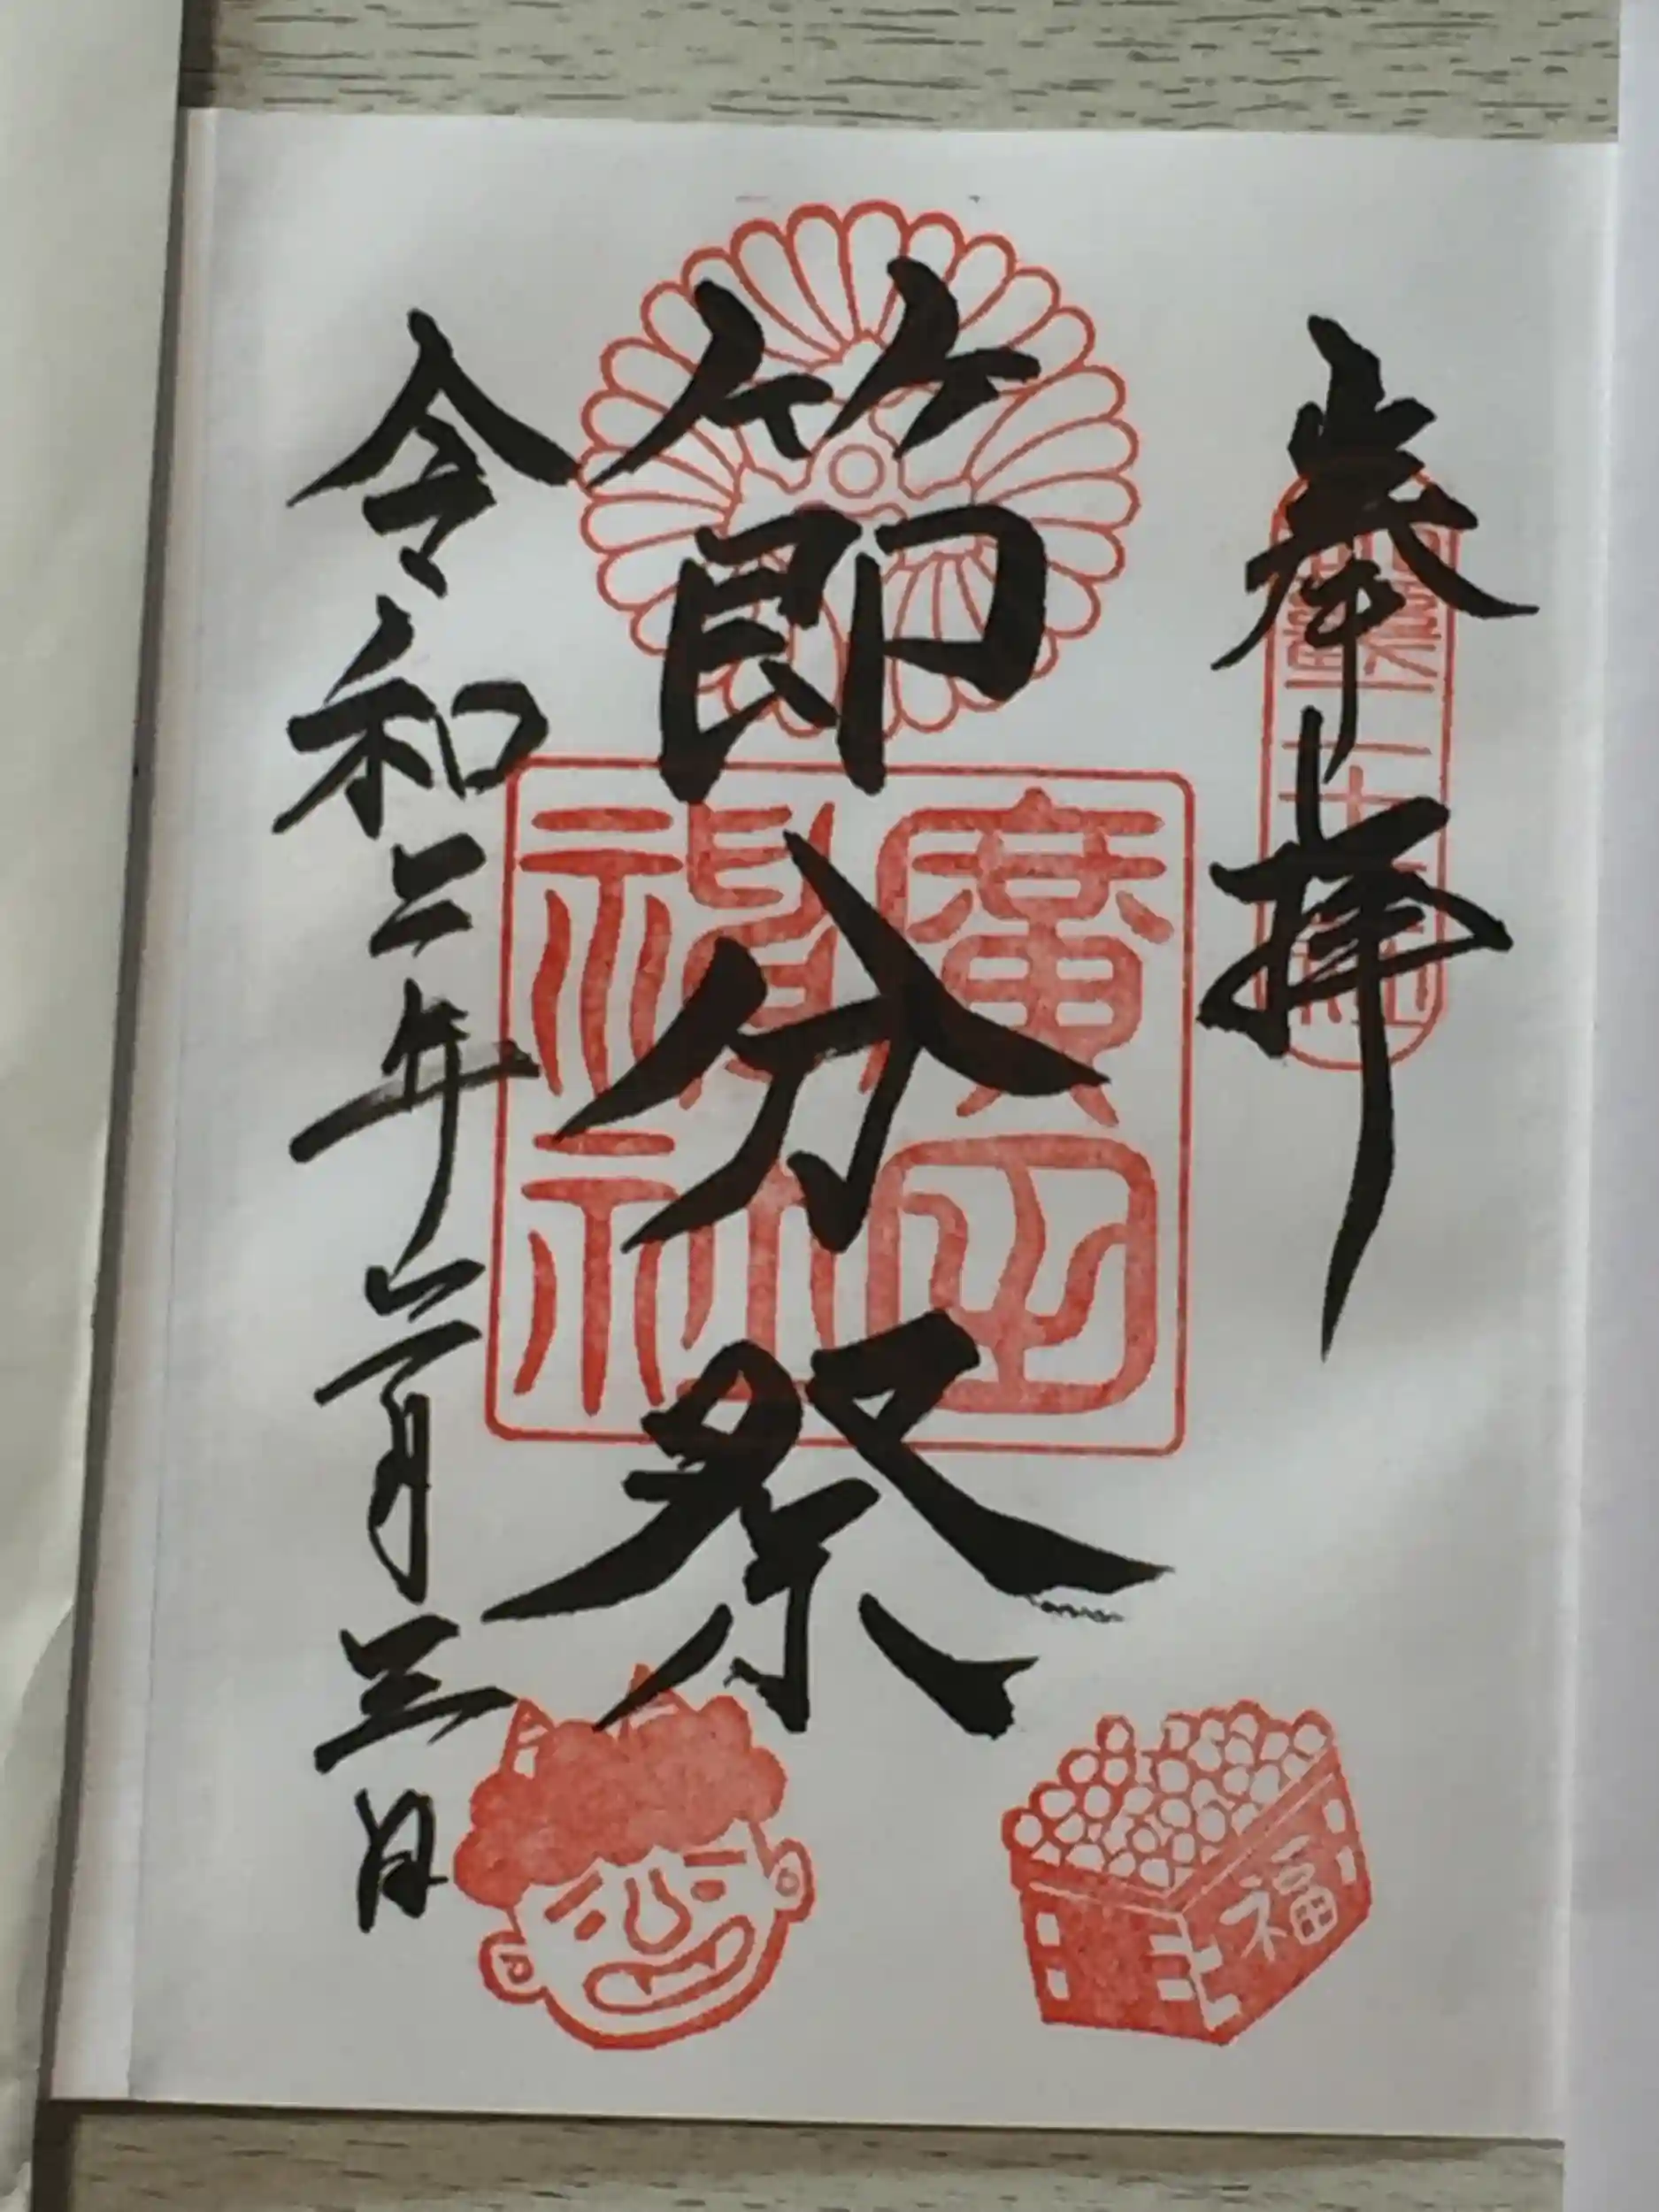 奉拝
節分祭
令和二年二月三日
廣田
神社
福